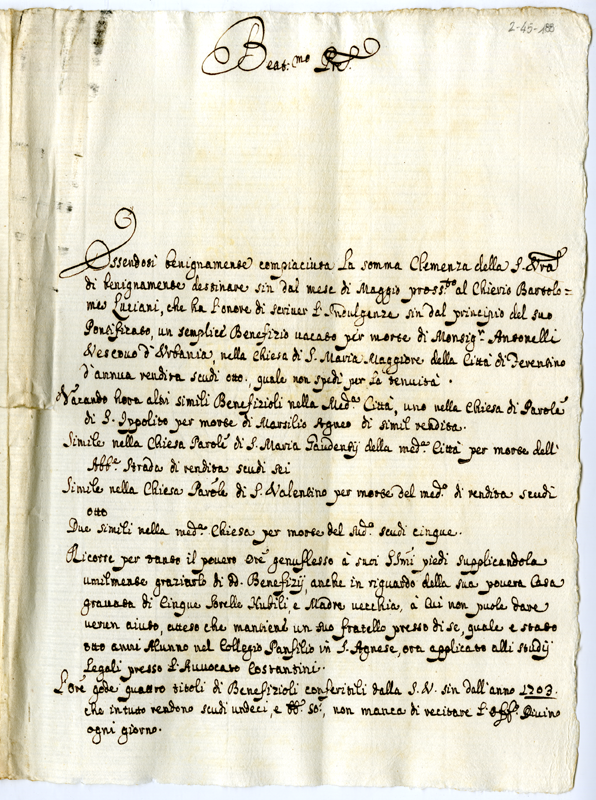 2-45-188
Beat:mo Pre.
Essendosi benignamente compiaciuta La somma Clemenza della S. Vra
di benignamente destinare sin dal mese di Maggio pross:to al Chierio Bartolo=
meo Luciani, che ha l'onore di scriver l'Indulgenze sin dal principio del suo
Pontificato, un semplice Benefizio vacato per morte di Monsig.r Antonelli
Vescovo d'Urbania, nella Chiesa di S. Maria Maggiore della Città di Ferentino
d'annua rendita scudi otto, quale non spedì per la tenuità.
Vacando hora altri simili Benefizioli nella Med.a Città, uno nella Chiesa di Parole
di S. Ippolito per morte di Marsilio Agneo di simil rendita.
Simile nella Chiesa Parole di S. Maria Gaudentij della med.a Città per morte dell'
Abb.e Strada di rendita scudi sei
Simile nella Chiesa Parole di S. Valentino per morte del med.o di rendita scudi
otto
Due simili nella med.a Chiesa per morte del sud.o scudi cinque.
Ricorre per tanto il povero Ore genuflesso à suoi SSmi piedi supplicandola
umilmente graziarlo di dd. Benefizij, anche in riguardo della sua povera Casa
gravata di Cinque Sorelle Nubili, e Madre vecchia, à Cui non puole dare
verun aiuto, atteso che mantiene un suo fratello presso di se, quale è stato
otto anni Alunno nel Collegio Panfilio in S. Agnese, ora applicato alli studij
Legali presso l'Avvocato Costantini.
L'Ore gode quattro titoli di Benefizioli conferitili dalla S. V. sin dall'anno 1703.
che in tutto rendono scudi undeci, e bb. 50:, non manca di recitare l'Off.o Divino
ogni giorno.